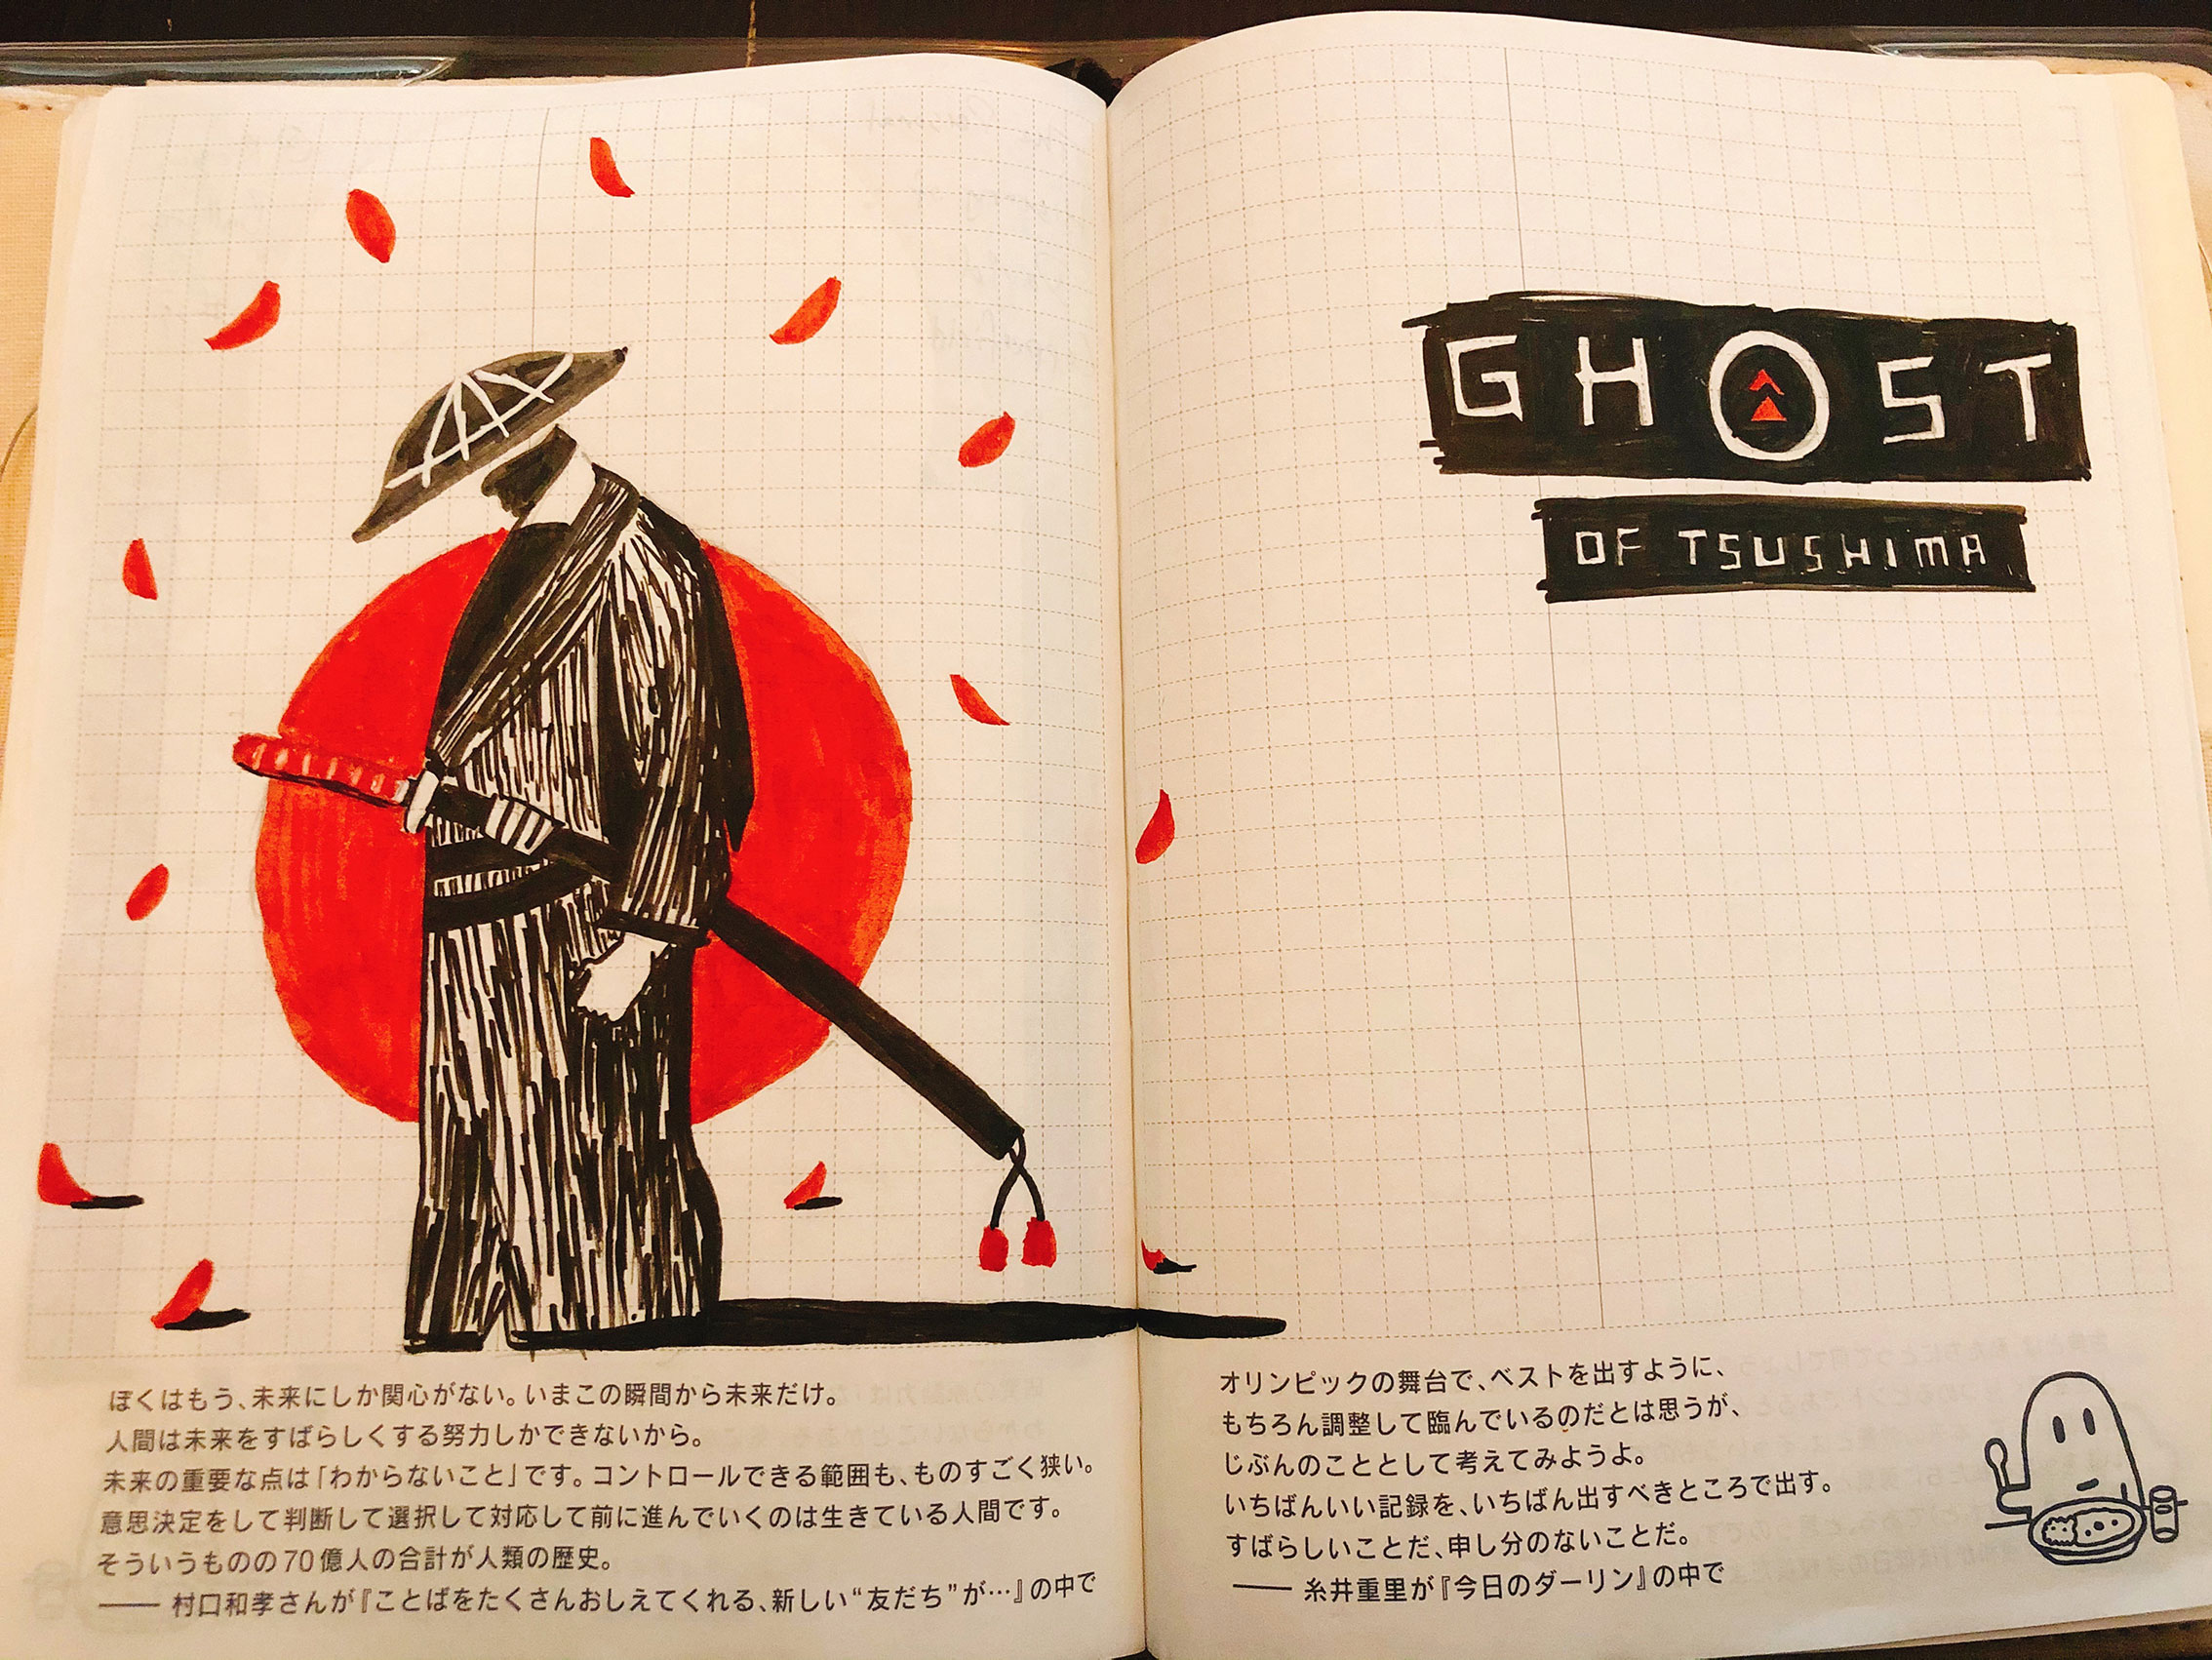 ぼくはもう、未来にしか関心がない。いまこの瞬間から未来だけ。
人間は未来をすばらしくする努力しかできないから。
未来の重要な点は「わからないこと」です。コントロールできる範囲も、ものすごく狭い。
意思決定をして判断して選択して対応して前に進んでいくのは生きている人間です。
そういうものの70億人の合計が人類の歴史。
―― 村口和孝さんが『ことばをたくさんおしえてくれる、新しい“友だち”が…』の中で
GHOST
OF TSUSHIMA
オリンピックの舞台で、ベストを出すように、
もちろん調整して臨んでいるのだとは思うが、
じぶんのこととして考えてみようよ。
いちばんいい記録を、いちばん出すべきところで出す。
すばらしいことだ、申し分のないことだ。
―― 糸井重里が『今日のダーリン』の中で